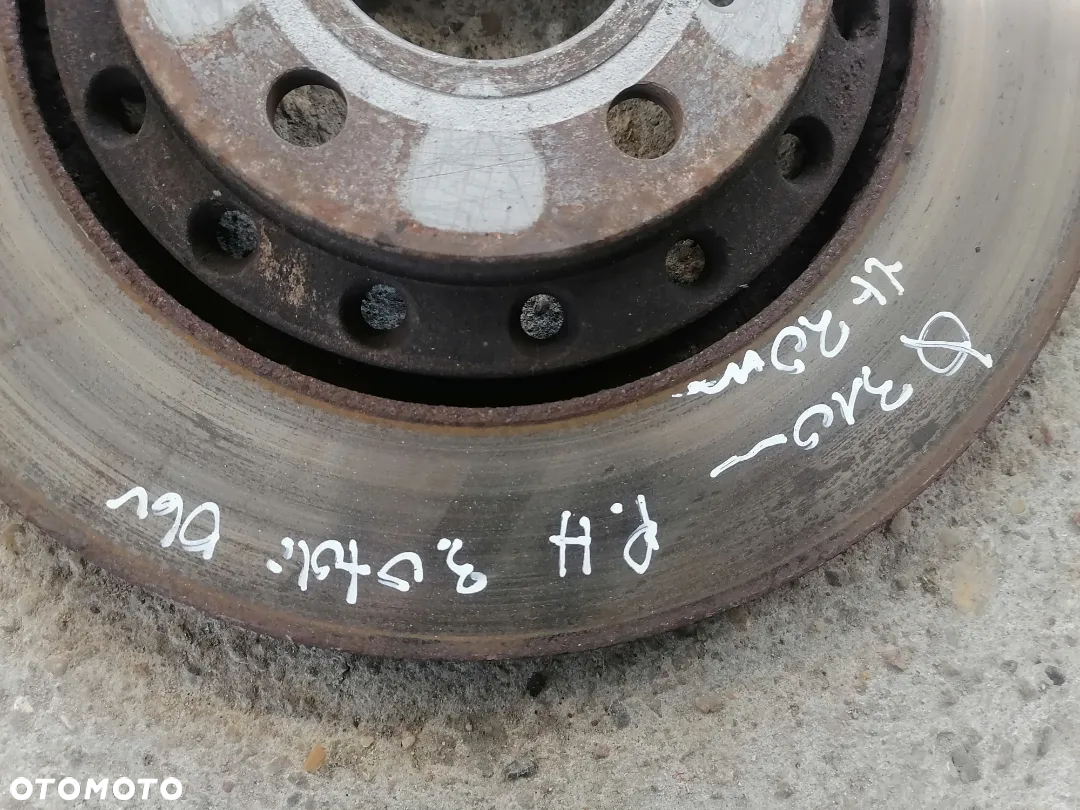 Ø 310
20mm
P.H 3.0 tdi 06r
OTOMOTO